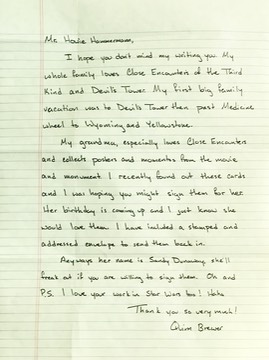 Mr. Howie Hammerman,
I hope you don't mind my writing you. My
whole family loves Close Encounters of the Third
Kind and Devils Tower. My first big family
vacation was to Devils Tower then past Medicine
wheel to Wyoming and Yellowstone.
My grandma, especially loves Close Encounters
and collects posters and momentos from the movie
and monument. I recently found out these cards
and I was hoping you might sign them for her.
Her birthday is coming up and I just know she
would love them. I have included a stamped and
addressed envelope to send them back in.
Anyways her name is Sandy Dunaway she'll
freak at if you are willing to sign them. Oh and
P.S. I love your work in Star Wars too! Haha
Thank you so very much!
Quinn Brewer